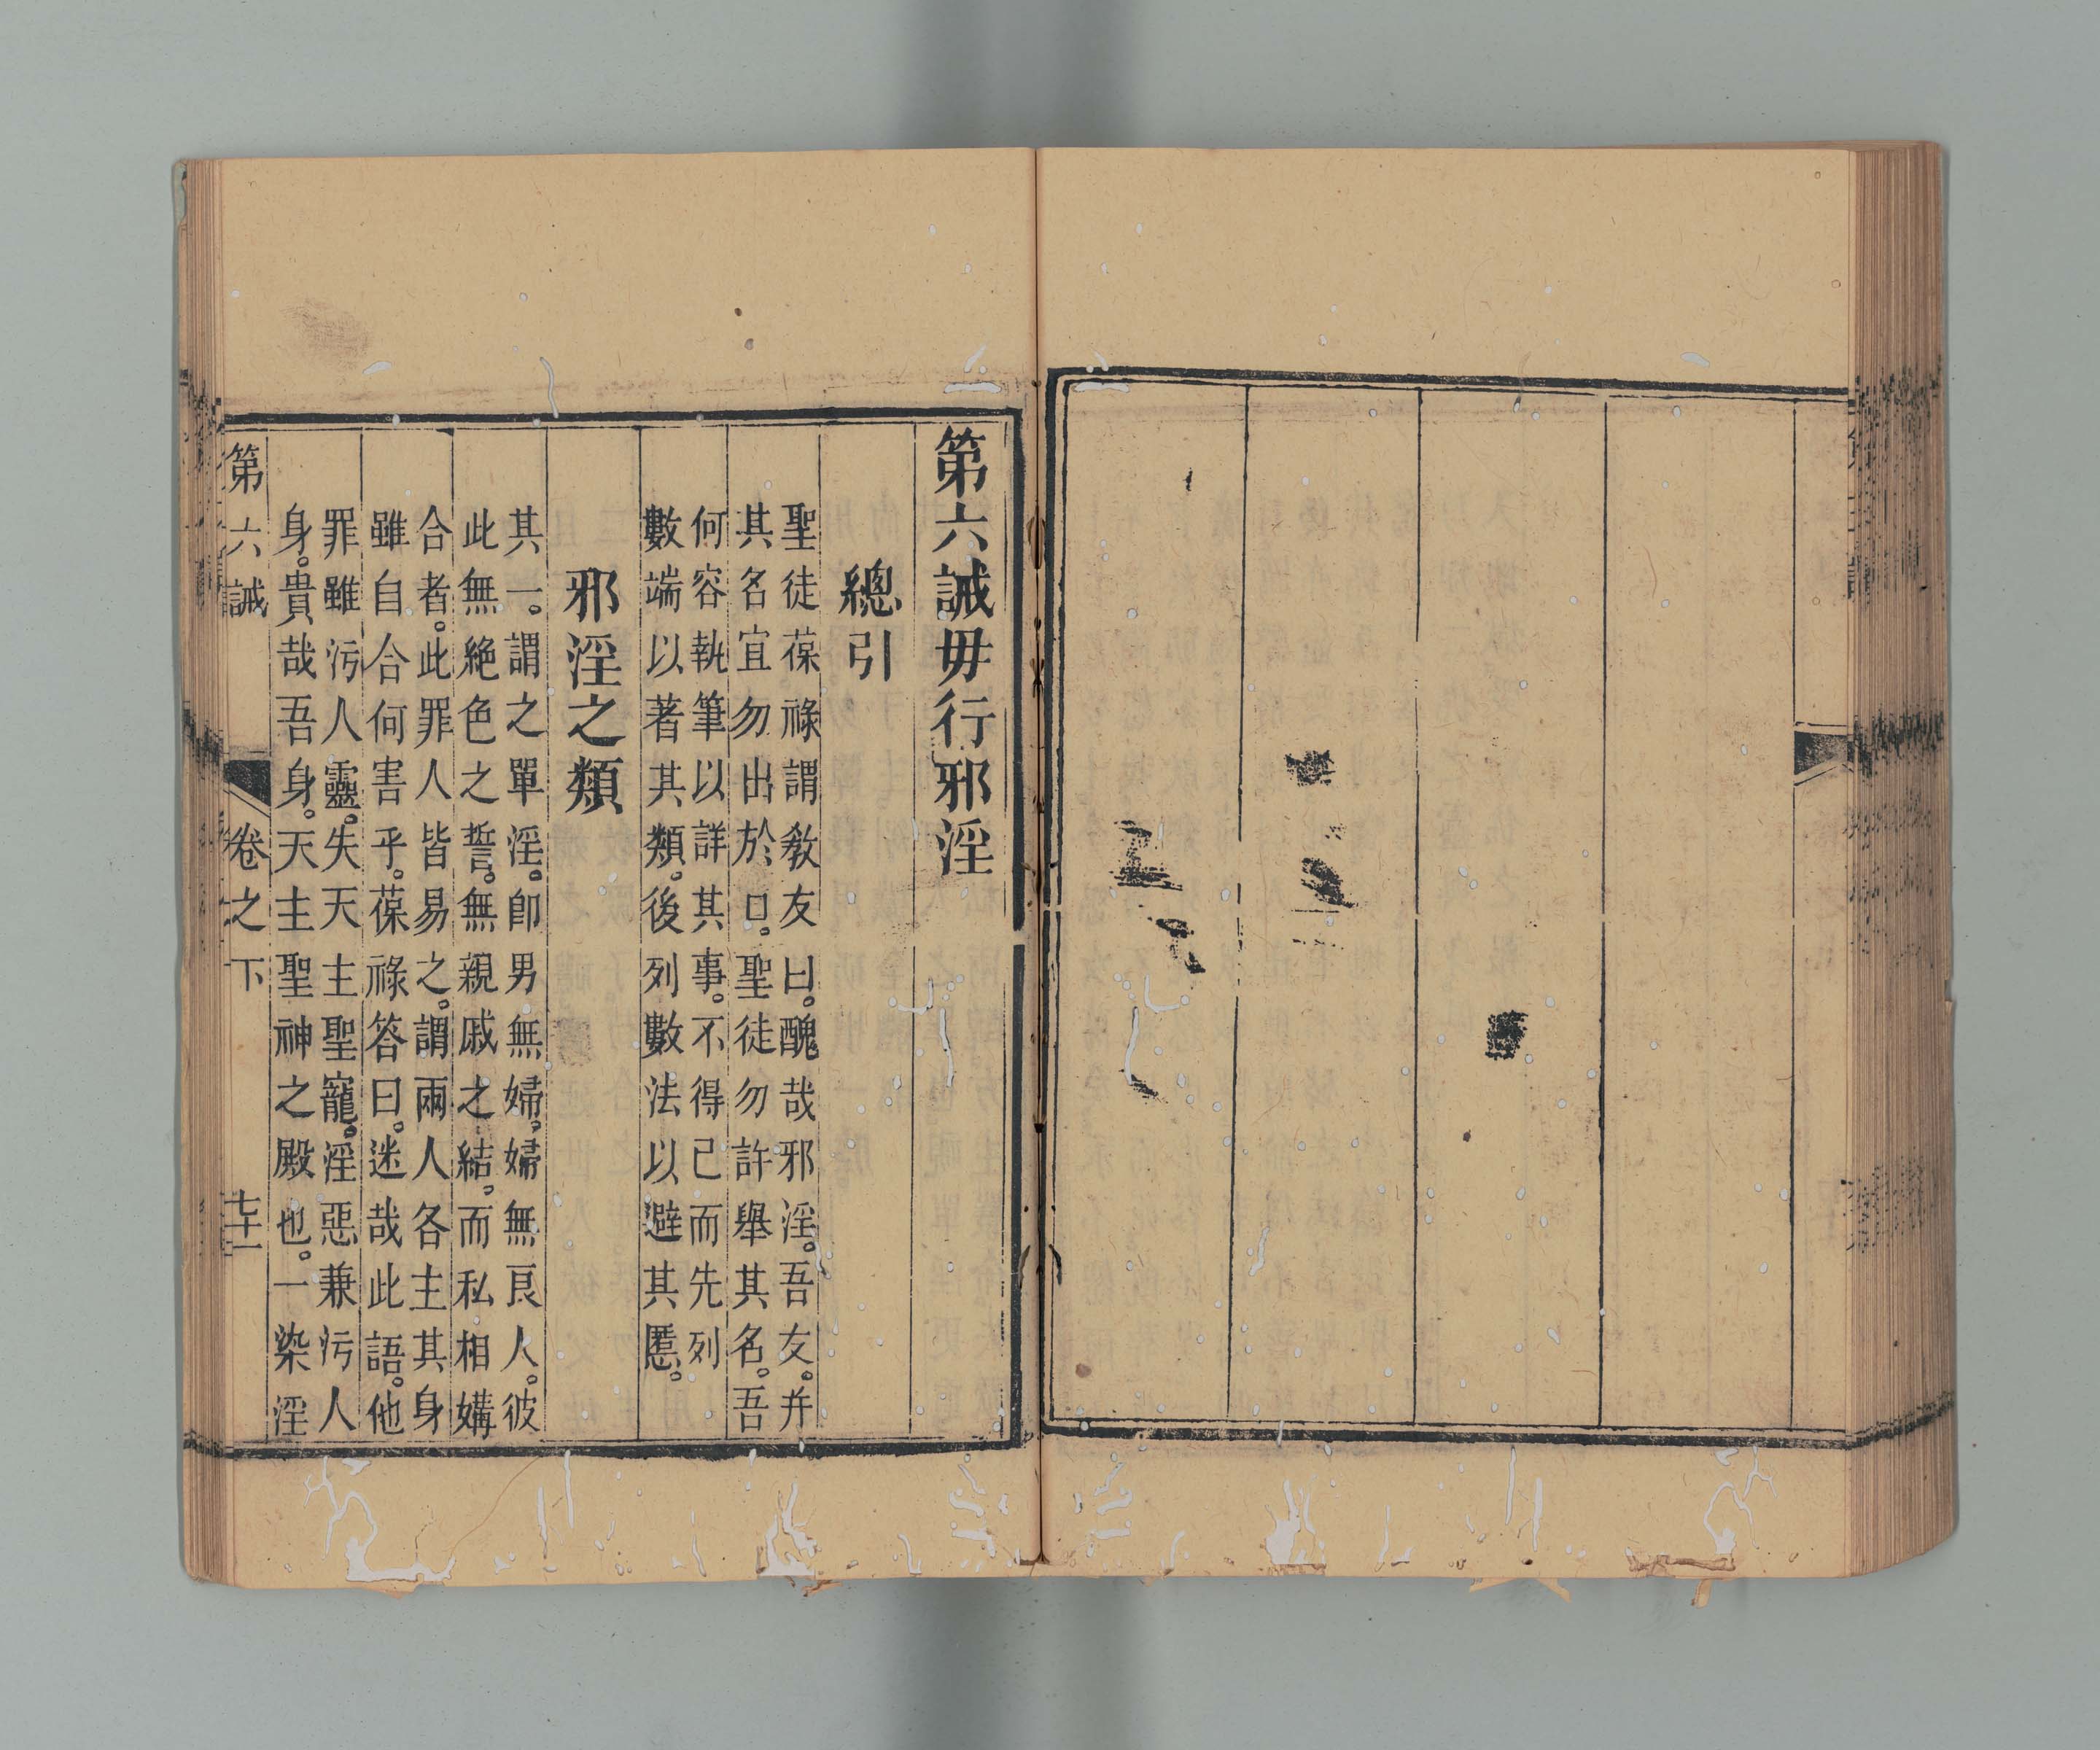 第六誡毋行邪淫
總引
聖徒葆祿謂教友曰。醜哉邪淫。吾友。并
其名宜勿出於口。聖徒勿許舉其名。吾
何容執筆以詳其事。不得已而先列
數端以著其類。後列數法以避其慝。
邪淫之類
其一。謂之單淫。卽男無婦。婦無良人。彼
此無絕色之誓。無親戚之結。而私相媾
合者。此罪人皆易之。謂兩人各主其身
雖自合何害乎。葆祿答曰。迷哉此語。他
罪雖污人靈。失天主聖寵。淫惡兼污人
身。貴哉吾身。天主聖神之殿也。一染淫
第六誡 卷之下 七十一